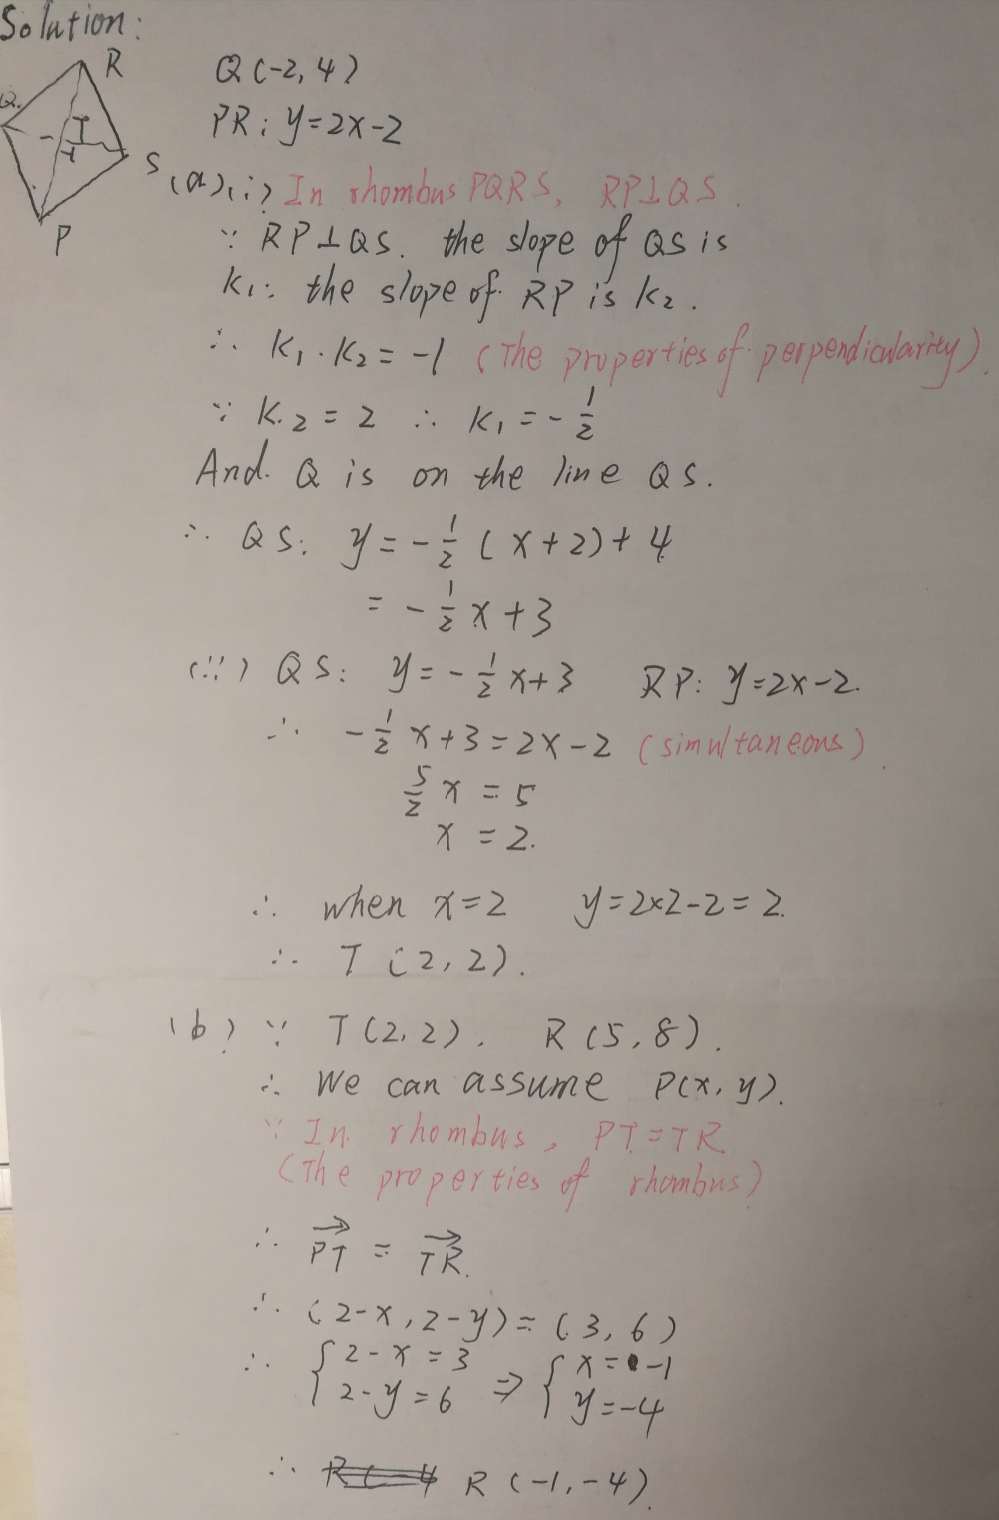 Solution:
R
Q.
T
S
P
Q(-2,4)
PR: y=2x-2
(a)(i) In rhombus PQRS, RP⊥QS.
∵ RP⊥QS. the slope of QS is
K₁. the slope of RP is K₂.
∴ K₁·K₂=-1 (The properties of perpendicularity).
∵ K.₂=2 ∴ K₁=-1/2
And. Q is on the line QS.
∴ QS: y=-1/2(x+2)+4
=-1/2x+3
(ii) QS: y=-1/2x+3 RP: y=2x-2.
∴ -1/2x+3=2x-2 (simultaneous).
5/2x=5
x=2.
∴ when x=2 y=2×2-2=2.
∴ T(2,2).
(b) ∵ T(2,2). R(5,8).
∴ We can assume P(x,y).
∵ In rhombus, PT=TR
(The properties of rhombus)
∴ →PT = →TR.
∴ (2-x,2-y)=(3,6)
∴ {2-x=3 ⇒ {x=-1
2-y=6 y=-4
∴ R(-1,-4).